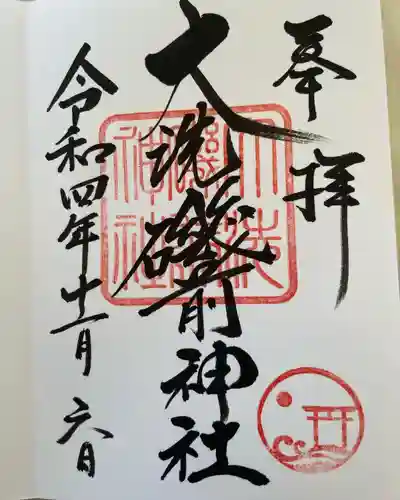 奉拝
大洗磯前神社
令和四年十一月六日
大洗
磯前
神社